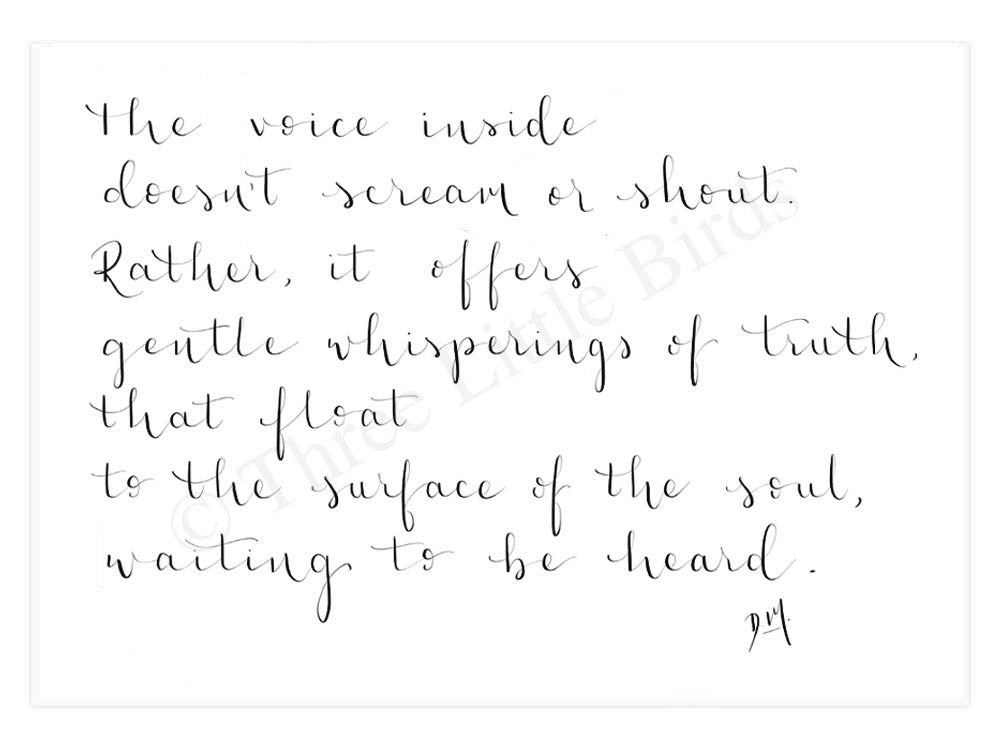 The voice inside
doesn't scream or shout.
Rather, it offers
gentle whisperings of truth,
that float
to the surface of the soul,
waiting to be heard.
DM.
© Three Little Birds